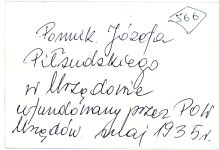 566
Pomnik Józefa
Piłsudskiego
w Urzędowie
ufundowany przez POW
Urzędów maj 1935r.